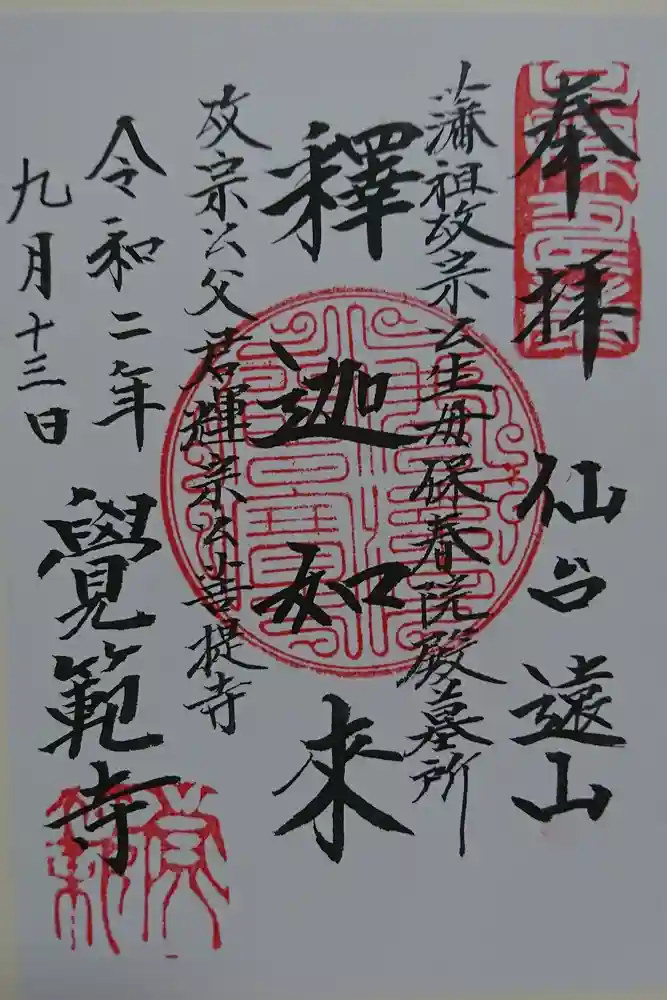 奉拝
仙台遠山
藩祖政宗公生母保春院殿墓所
釋迦如来
政宗公父君輝宗公菩提寺
令和二年
九月十三日
覺範寺